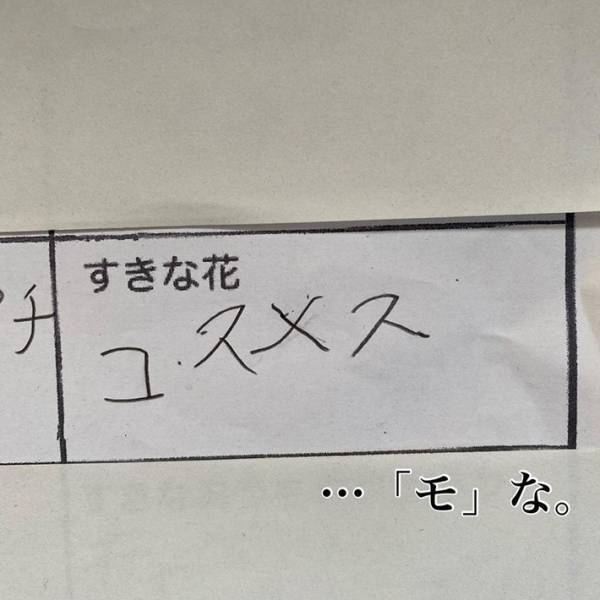 すきな花
チ
コスメス
…「モ」な。